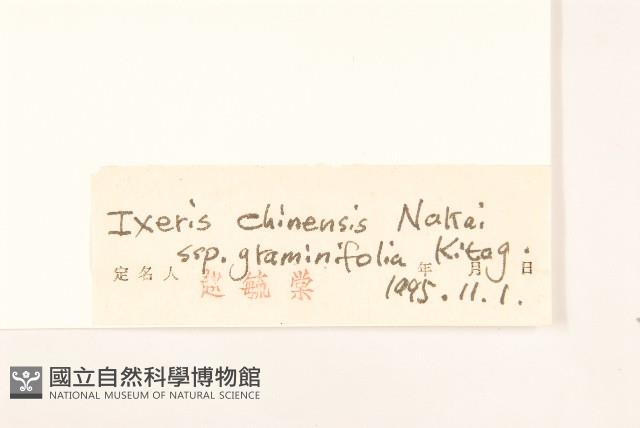 Ixeris chinensis Nakai
ssp. graminifolia Kitag.
定名人 趙毓棠 年 月 日
1995.11.1.
國立自然科學博物館
NATIONAL MUSEUM OF NATURAL SCIENCE